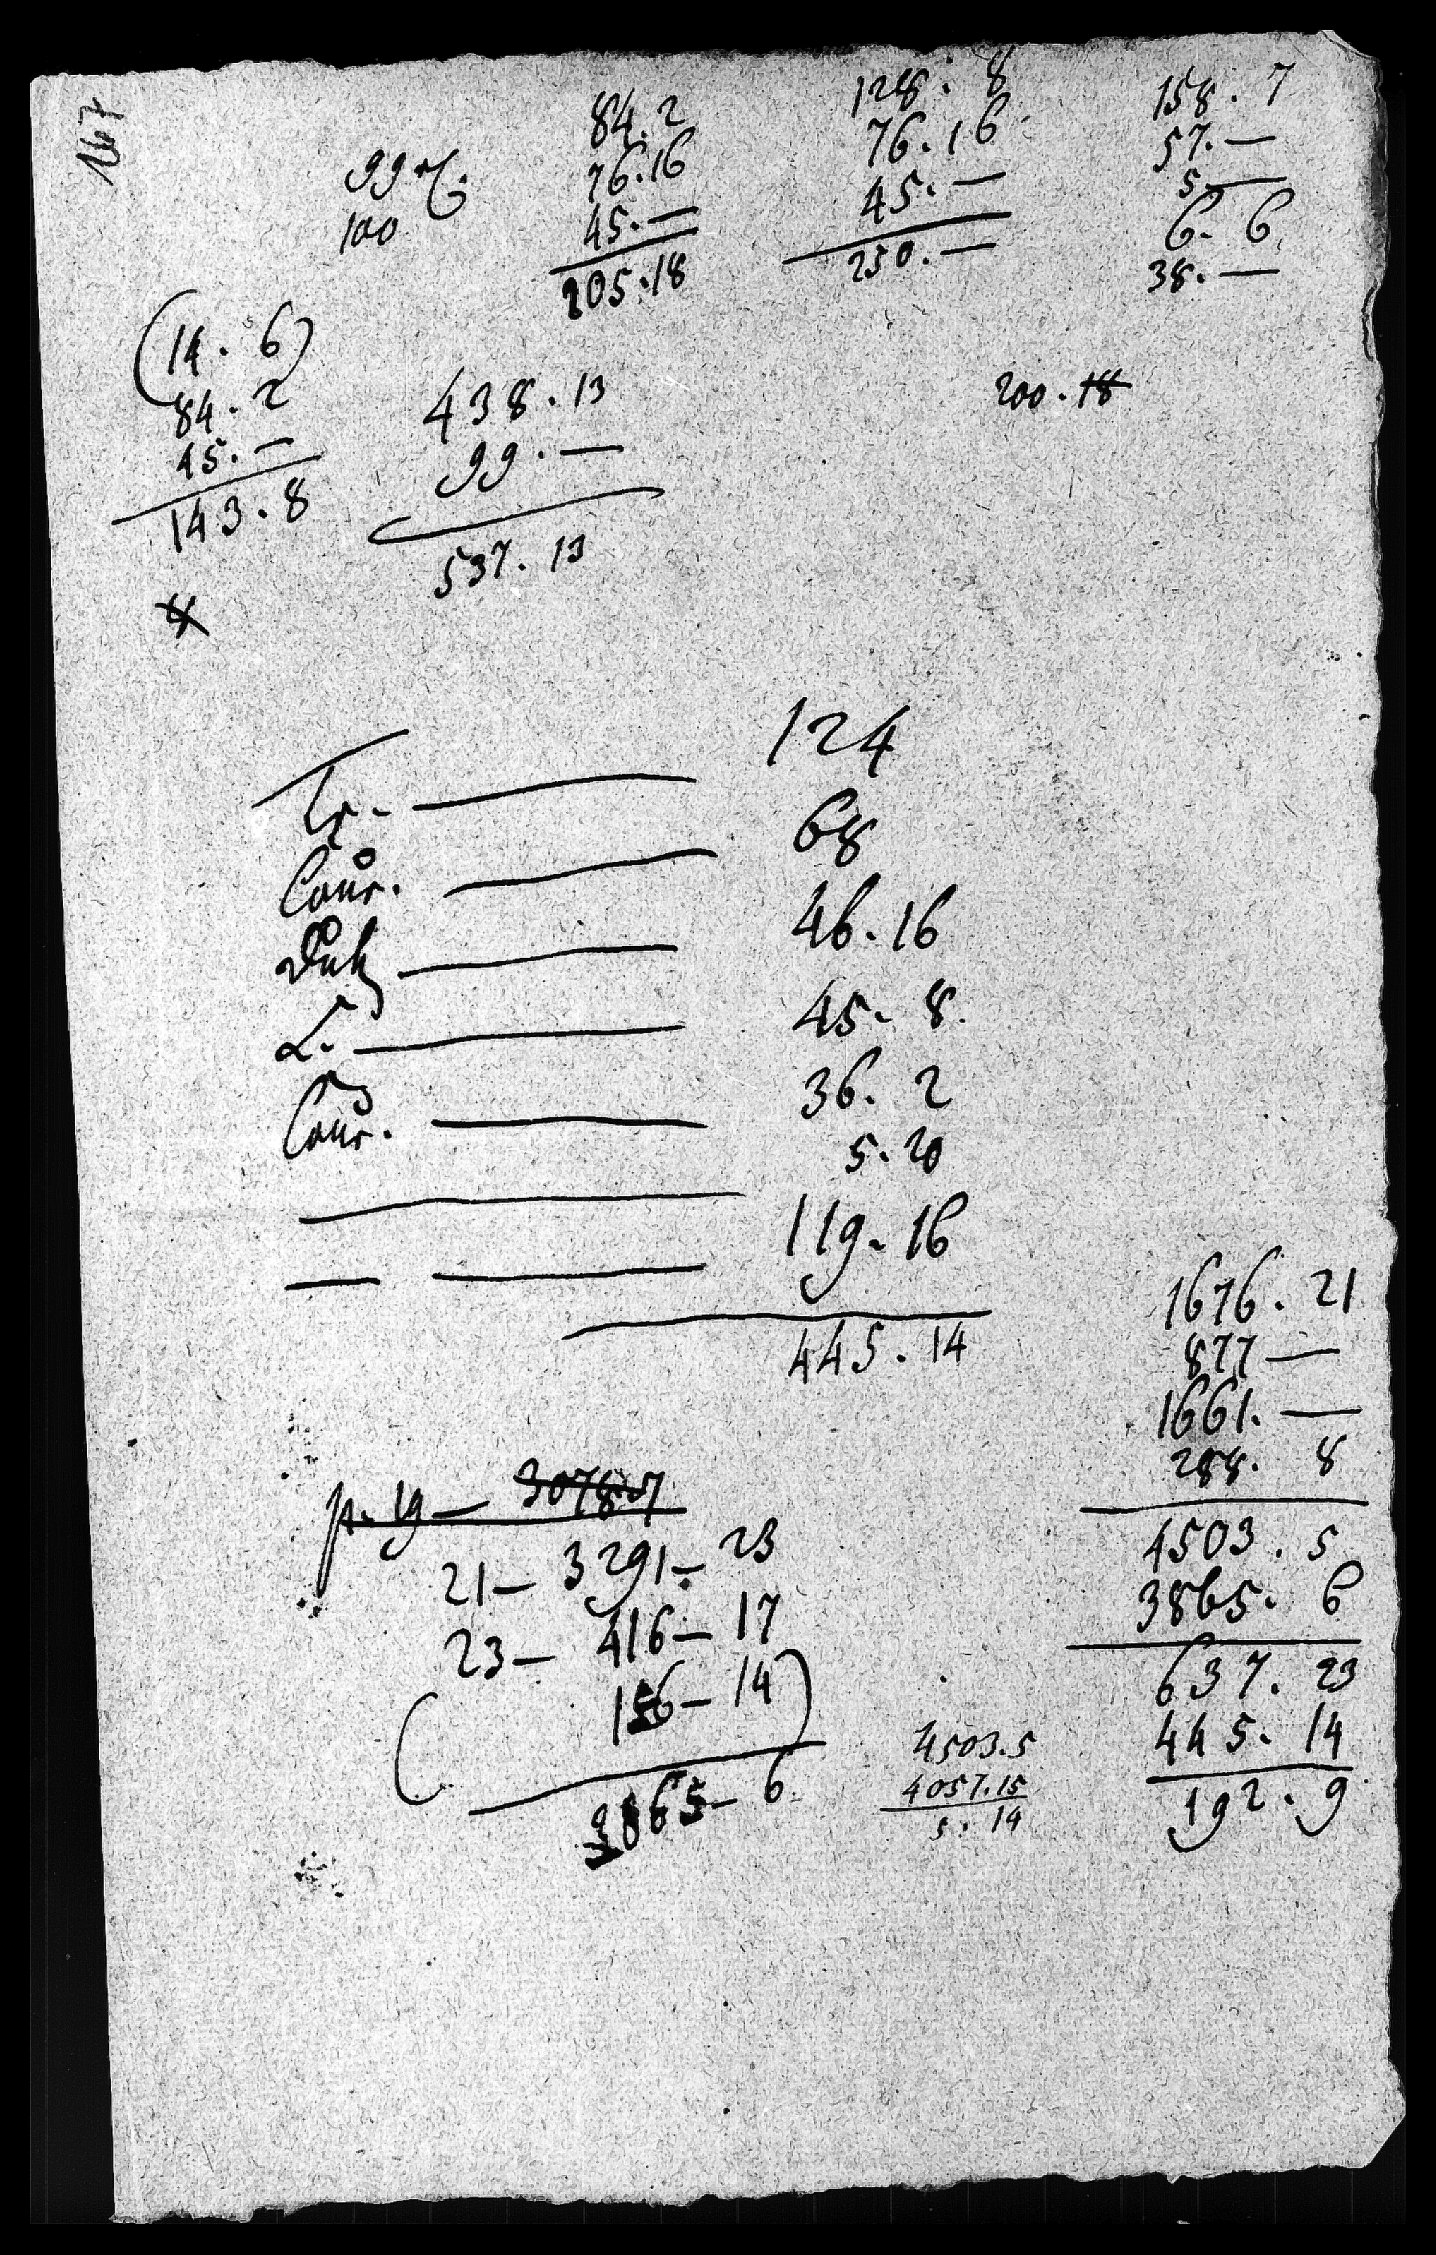 167
99 rℓ.
100
84. 2
76. 16
45. —
205. 18
128. 8
76. 16
45. —
250. —
158. 7
57. —
5. —
6. 6
38. —
(14. 6)
84. 2
45. —
143. 8
4
438. 13
99. —
537. 13
200. 18
Tr. — 124
Cour. — 68
Duk — 46. 16
L. — 45. 8.
Cour. — 36. 2
5. 20
— — 119. 16
445. 14
p. 19 — 3078. 7
21 — 3291 — 23
23 — 416 — 17
(156 — 14)
3865 — 6
4503. 5
4057. 15
5. 14
1676. 21
877 —
1661. —
288. 8
4503. 5
3865. 6
637. 23
445. 14
192. 9